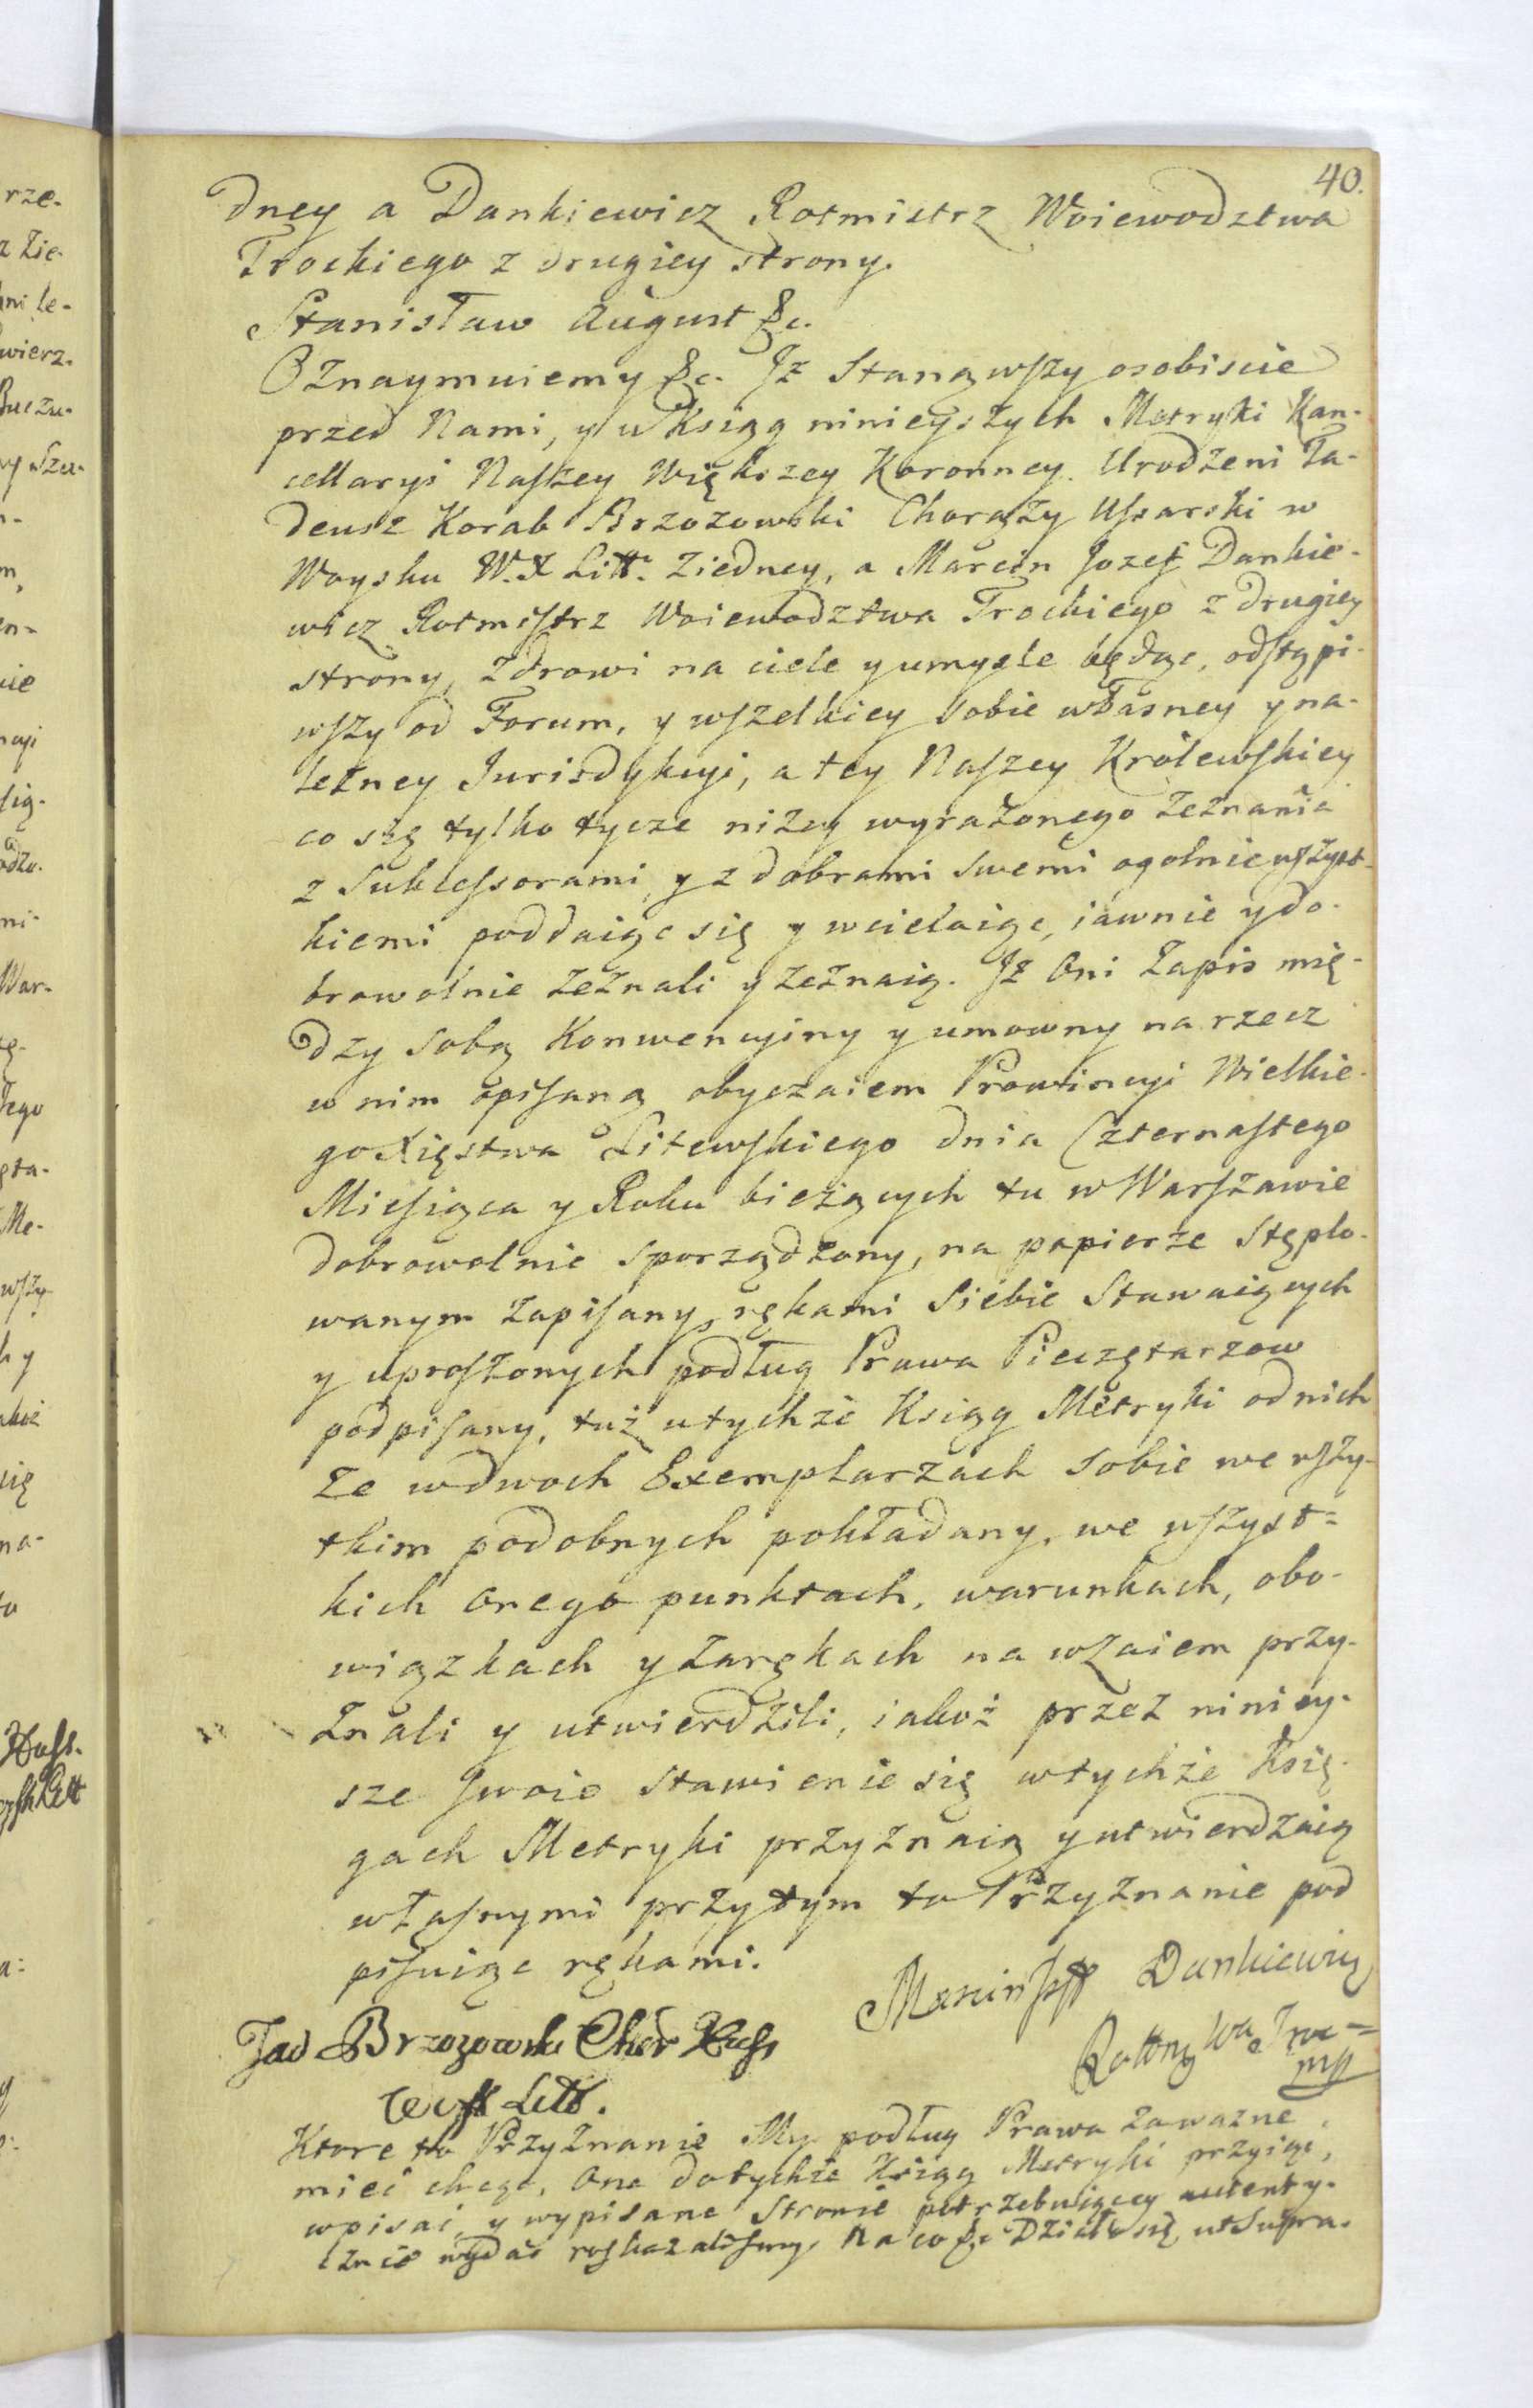 40.
dney a Dankiewicz Rotmistrz Woiewodztwa
Trockiego z drugiey strony.
Stanisław August &c.
Oznaymuiemy &c. Iż Stanąwszy osobiscie
przed Nami, y u Xsiąg ninieyszych Metryki Kan-
cellaryi Naszey Większey Koronney. Urodzeni Ta-
deusz Korab Brzozowski Chorąży Ussarski w
Woysku W. X Litt. z iedney, a Marcin Jozef Dankie-
wicz Rotmistrz Woiewodztwa Trockiego z drugiey
strony, zdrowi na ciele y umysle będąc, odstąpi-
wszy od Forum, y wszelkiey sobie własney y na-
leżney Jurisdykcyi, a tey Naszey Królewskiey
co się tylko tycze niżey wyrażonego zeznania
z Sukcessorami, y z dobrami swemi ogolnie wszyst-
kiemi poddaiąc się y wcielaiąc, iawnie y do-
browolnie zeznali y zeznaią. Iż Oni Zapis mię-
dzy sobą Konwencyiny y umowny na rzecz
w nim opisaną obyczaiem Prowincyi Wielkie-
go Xięstwa Litewskiego dnia Czternastego
Miesiąca y Roku bieżących tu w Warszawie
dobrowolnie sporządzony, na papierze stęplo-
wanym zapisany, rękami Siebie Stawaiących
y uproszonych podług Prawa Pieczętarzow
podpisany, tuż u tychże Xsiąg Metryki od nich
że w dwoch Exemplarzach sobie we wszy-
tkim podobnych pokładany, we wszyst=
kich onego punktach, warunkach, obo-
wiązkach y zarękach na wzaiem przy-
znali y utwierdzili, iakoż przez niniey-
sze swoie stawienie się w tychże Xsię-
gach Metryki przyznaią y utwierdzaią
własnymi przytym to Przyznanie pod
pisuiąc rękami.
Marcin Jzff Dankiewicz
Tad Brzozowski Chor Huss
Litt.
Ktore to Przyznanie My podług Prawa za wazne
mieć chcąc, one do tychże Xsiąg Metryki przyiąć,
wpisać, y wypisane Stronie potrzebuiącey autenty-
cznie wydać roskazalismy. Na co &c Działo się, ut Supra.